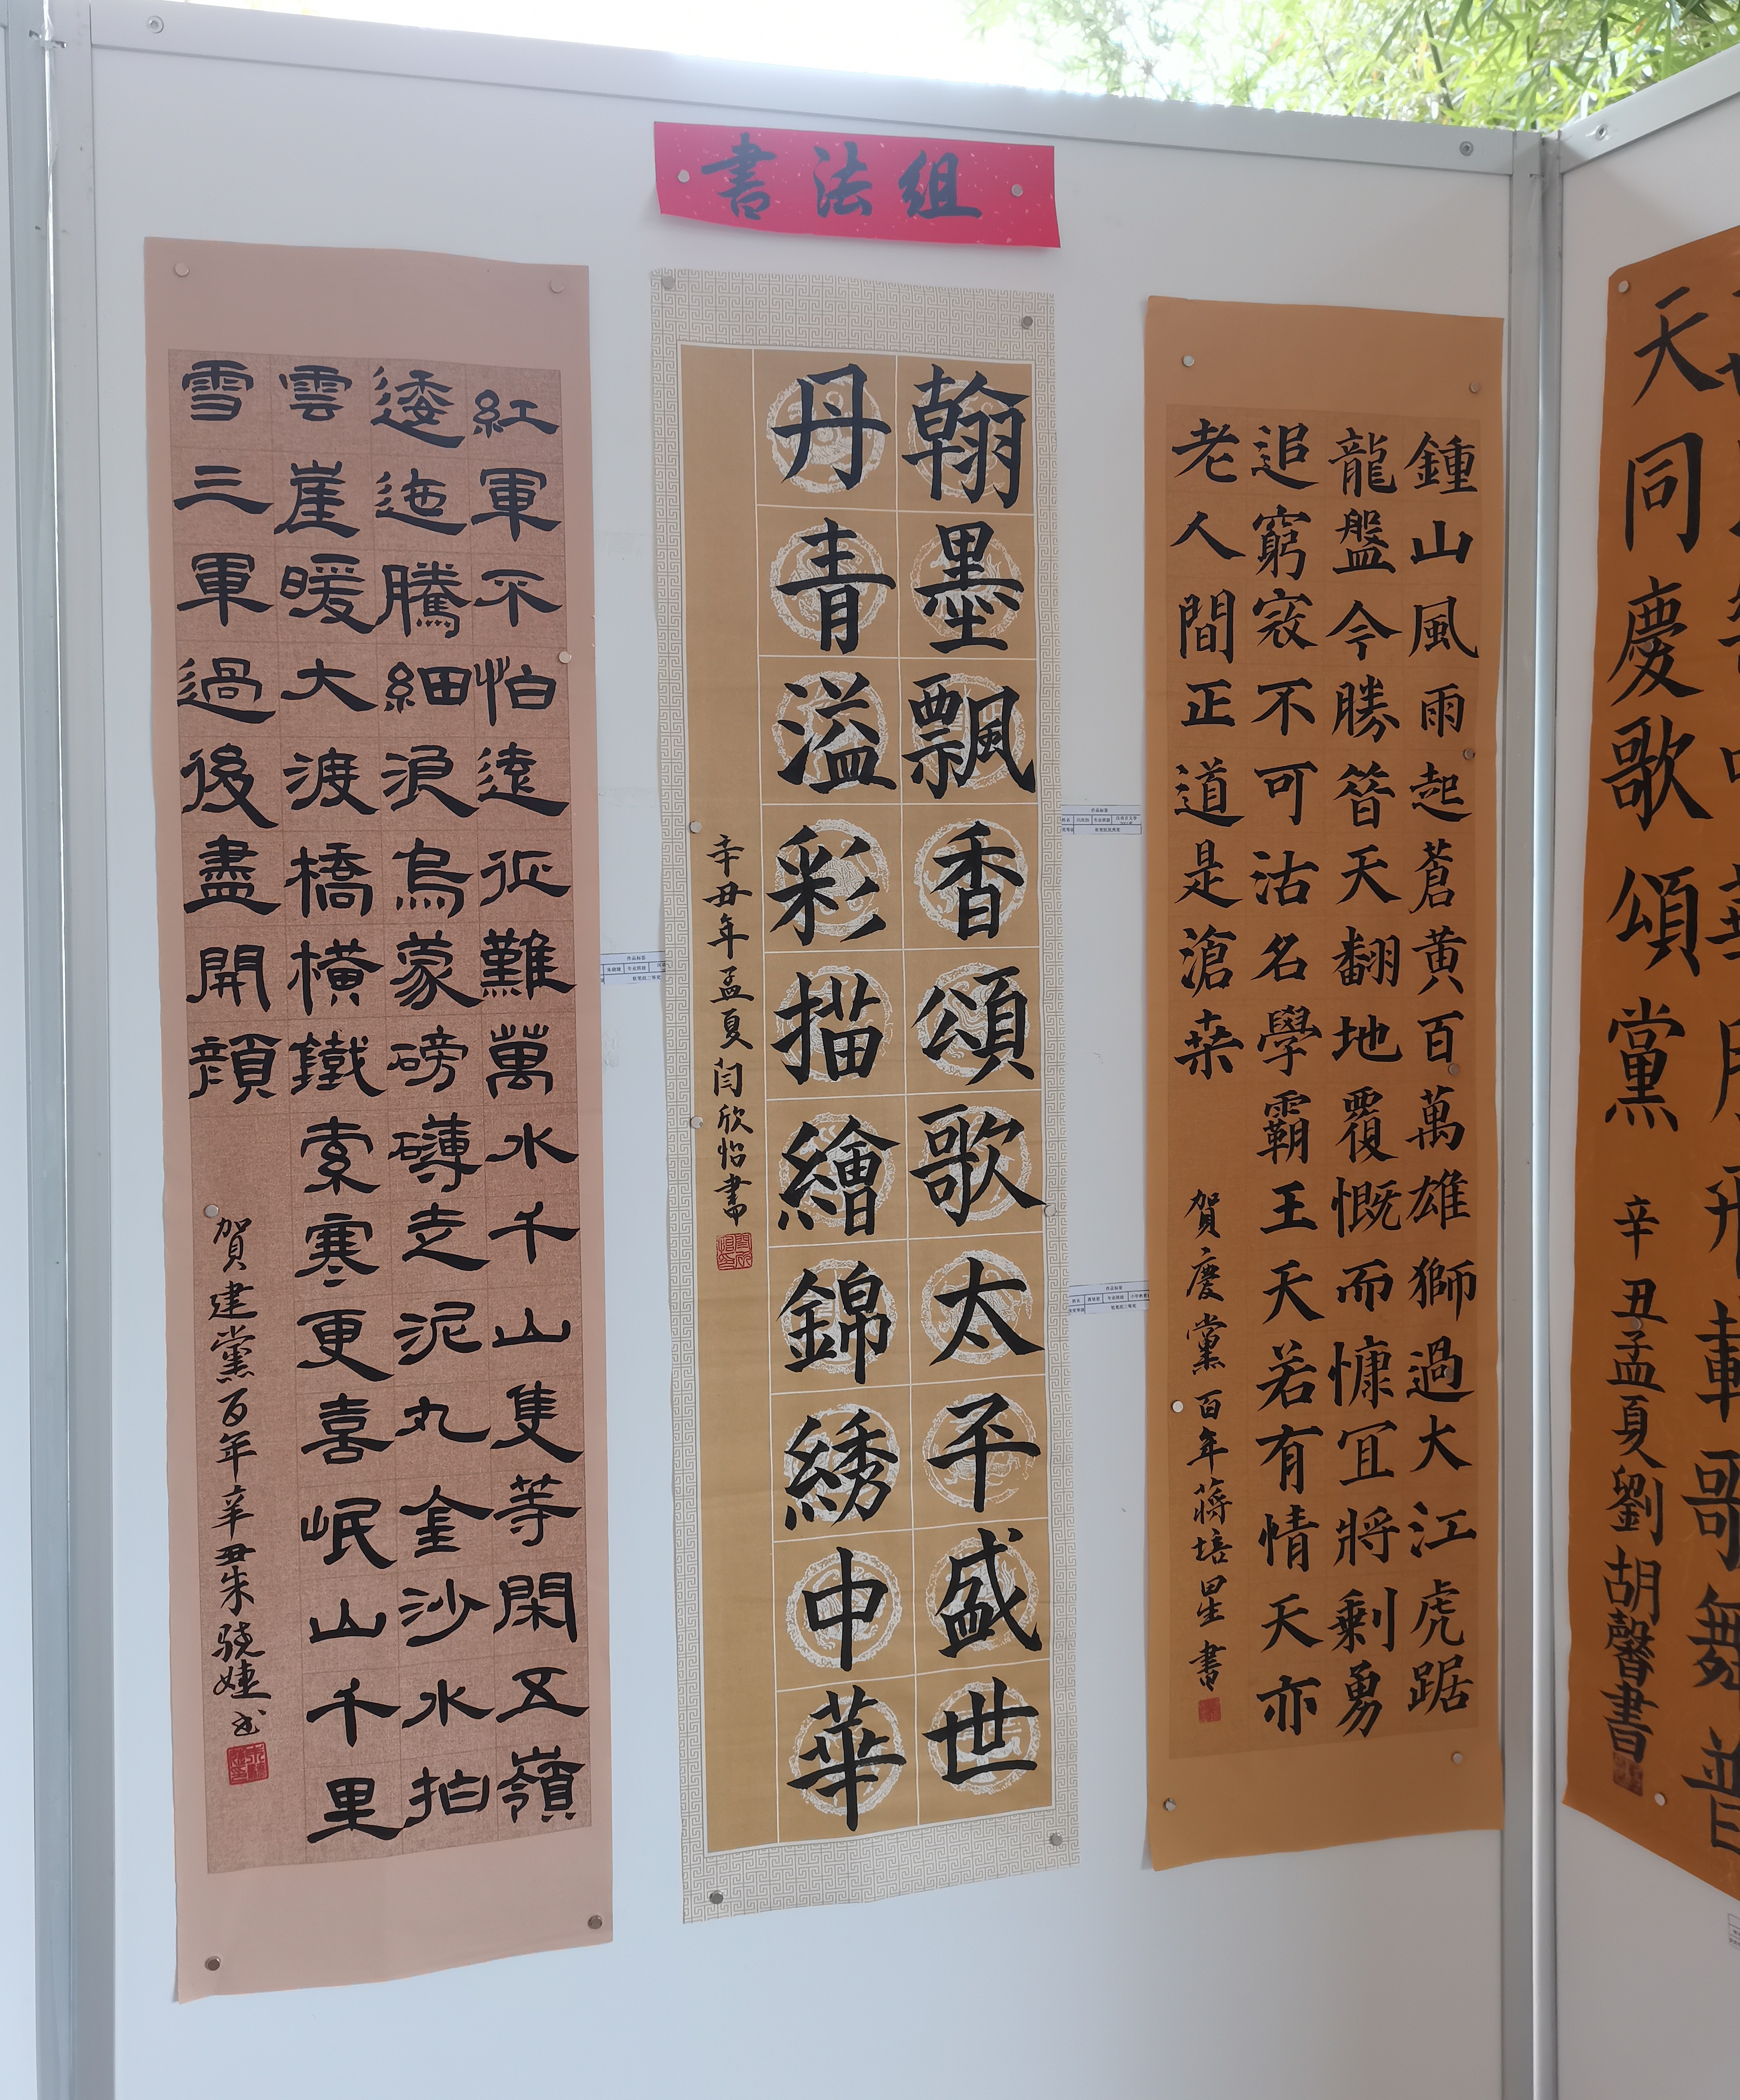 書法組
紅軍不怕遠征難萬水千山隻等閑五嶺
逶迤騰細浪烏蒙磅礴走泥丸金沙水拍
雲崖暖大渡橋橫鐵索寒更喜岷山千里
雪三軍過後盡開顏
賀建黨百年辛丑朱骁婕书
翰墨飄香頌歌太平盛世
丹青溢彩描繪錦綉中華
辛丑年孟夏闫欣怡書
鍾山風雨起蒼黄百萬雄獅過大江虎踞
龍盤今勝昝天翻地覆慨而慷宜將剩勇
追窮寇不可沽名學霸王天若有情天亦
老人間正道是滄桒
賀慶黨百年蔣培星書
歌舞普
天同慶歌頌黨
辛丑孟夏劉胡馨書
作品标签
作品标签
作品标签